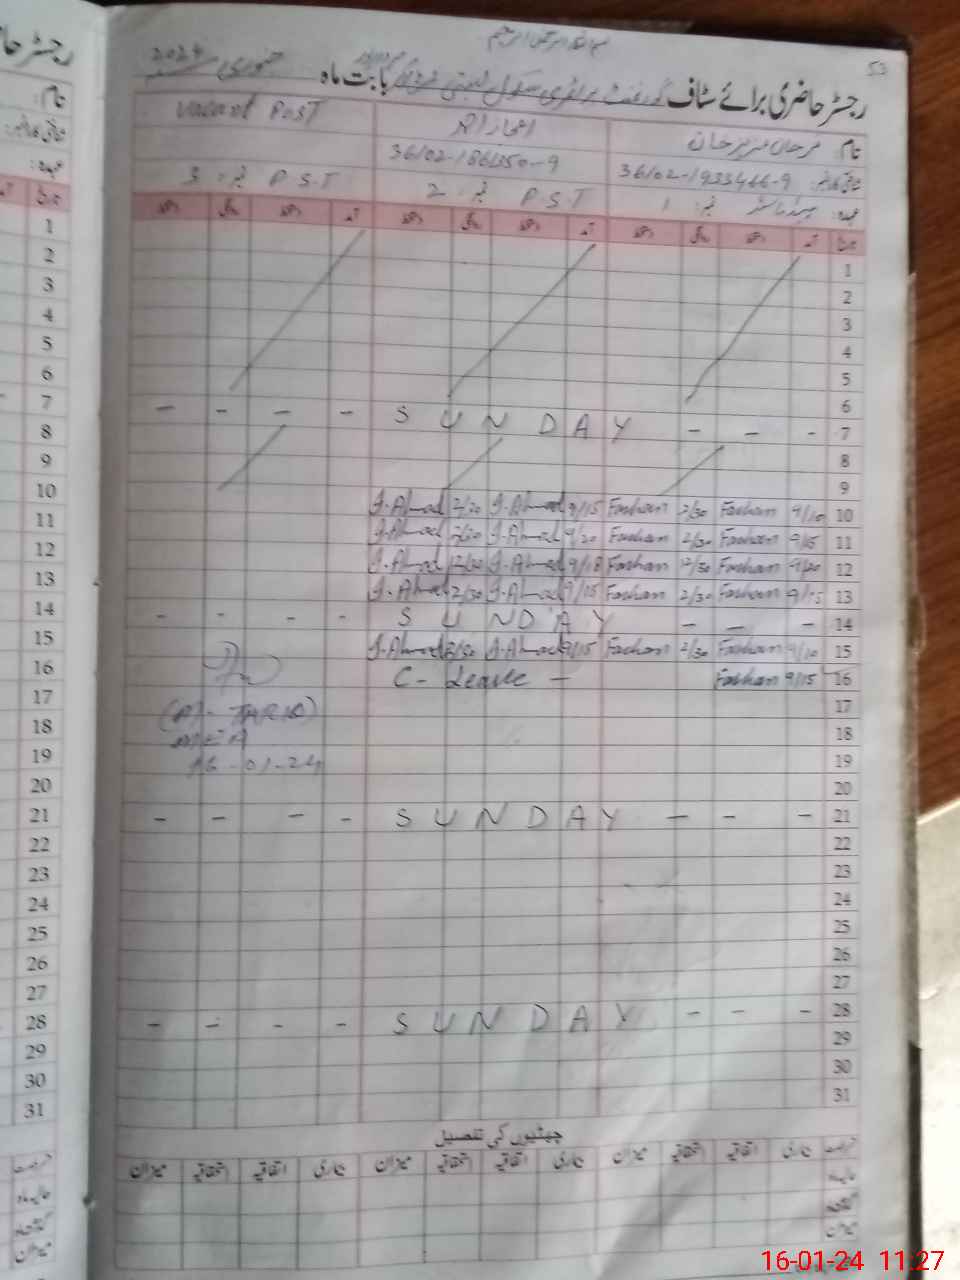 بسم اللہ الرحمن الرحیم
53
رجسٹر حاضری برائے سٹاف گورنمنٹ پرائمری سکول بستی بابت ماہ جنوری 2024
نام: اعجاز احمد Vacant Post
شناختی کارڈ نمبر: 36102-1933466-9
عہدہ: ہیڈ ماسٹر نمبر: 1 P.S.T نمبر: 2 P.S.T نمبر: 3
تاریخ آمد دستخط روانگی دستخط آمد دستخط روانگی دستخط آمد دستخط روانگی دستخط
1
2
3
4
5
6
- - - - S U N D A Y - - - 7
8
9
J.Ahmad 2/30 J.Ahmad 9/15 Farhan 2/30 Farhan 9/10 10
J.Ahmad 2/30 J.Ahmad 9/20 Farhan 2/30 Farhan 9/15 11
J.Ahmad 12/30 J.Ahmad 9/18 Farhan 12/30 Farhan 9/20 12
J.Ahmad 2/30 J.Ahmad 9/15 Farhan 2/30 Farhan 9/15 13
- - - - S U N D A Y - - - 14
J.Ahmad 2/30 J.Ahmad 9/15 Farhan 2/30 Farhan 9/10 15
C- Leave - Farhan 9/15 16
17
(M-TARIQ)
18
MEA
19
16-01-24
20
- - - - S U N D A Y - - - 21
22
23
24
25
26
27
- - - - S U N D A Y - - - 28
29
30
31
چھٹیوں کی تفصیل
رخصت جاری اتفاقیہ استحقاقیہ میزان جاری اتفاقیہ استحقاقیہ میزان جاری اتفاقیہ استحقاقیہ میزان
حالیہ ماہ
گذشتہ
میزان
رجسٹر حا
نام:
شناختی کارڈ نمبر:
عہدہ:
تاریخ
1
2
3
4
5
6
7
8
9
10
11
12
13
14
15
16
17
18
19
20
21
22
23
24
25
26
27
28
29
30
31
رخصت
حالیہ ماہ
گذشتہ
میزان
16-01-24 11:27